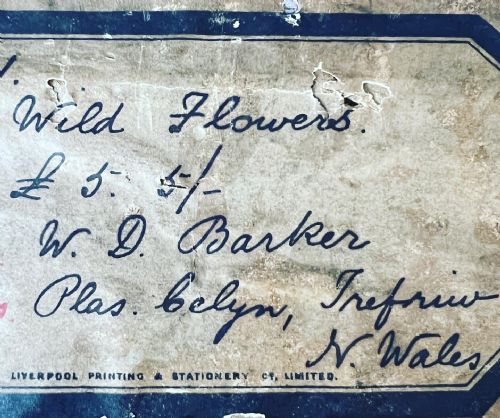 Wild Flowers.
£ 5. 5/-
W. D. Barker
Plas. Celyn, Trefriw
N. Wales
LIVERPOOL PRINTING & STATIONERY CY, LIMITED.